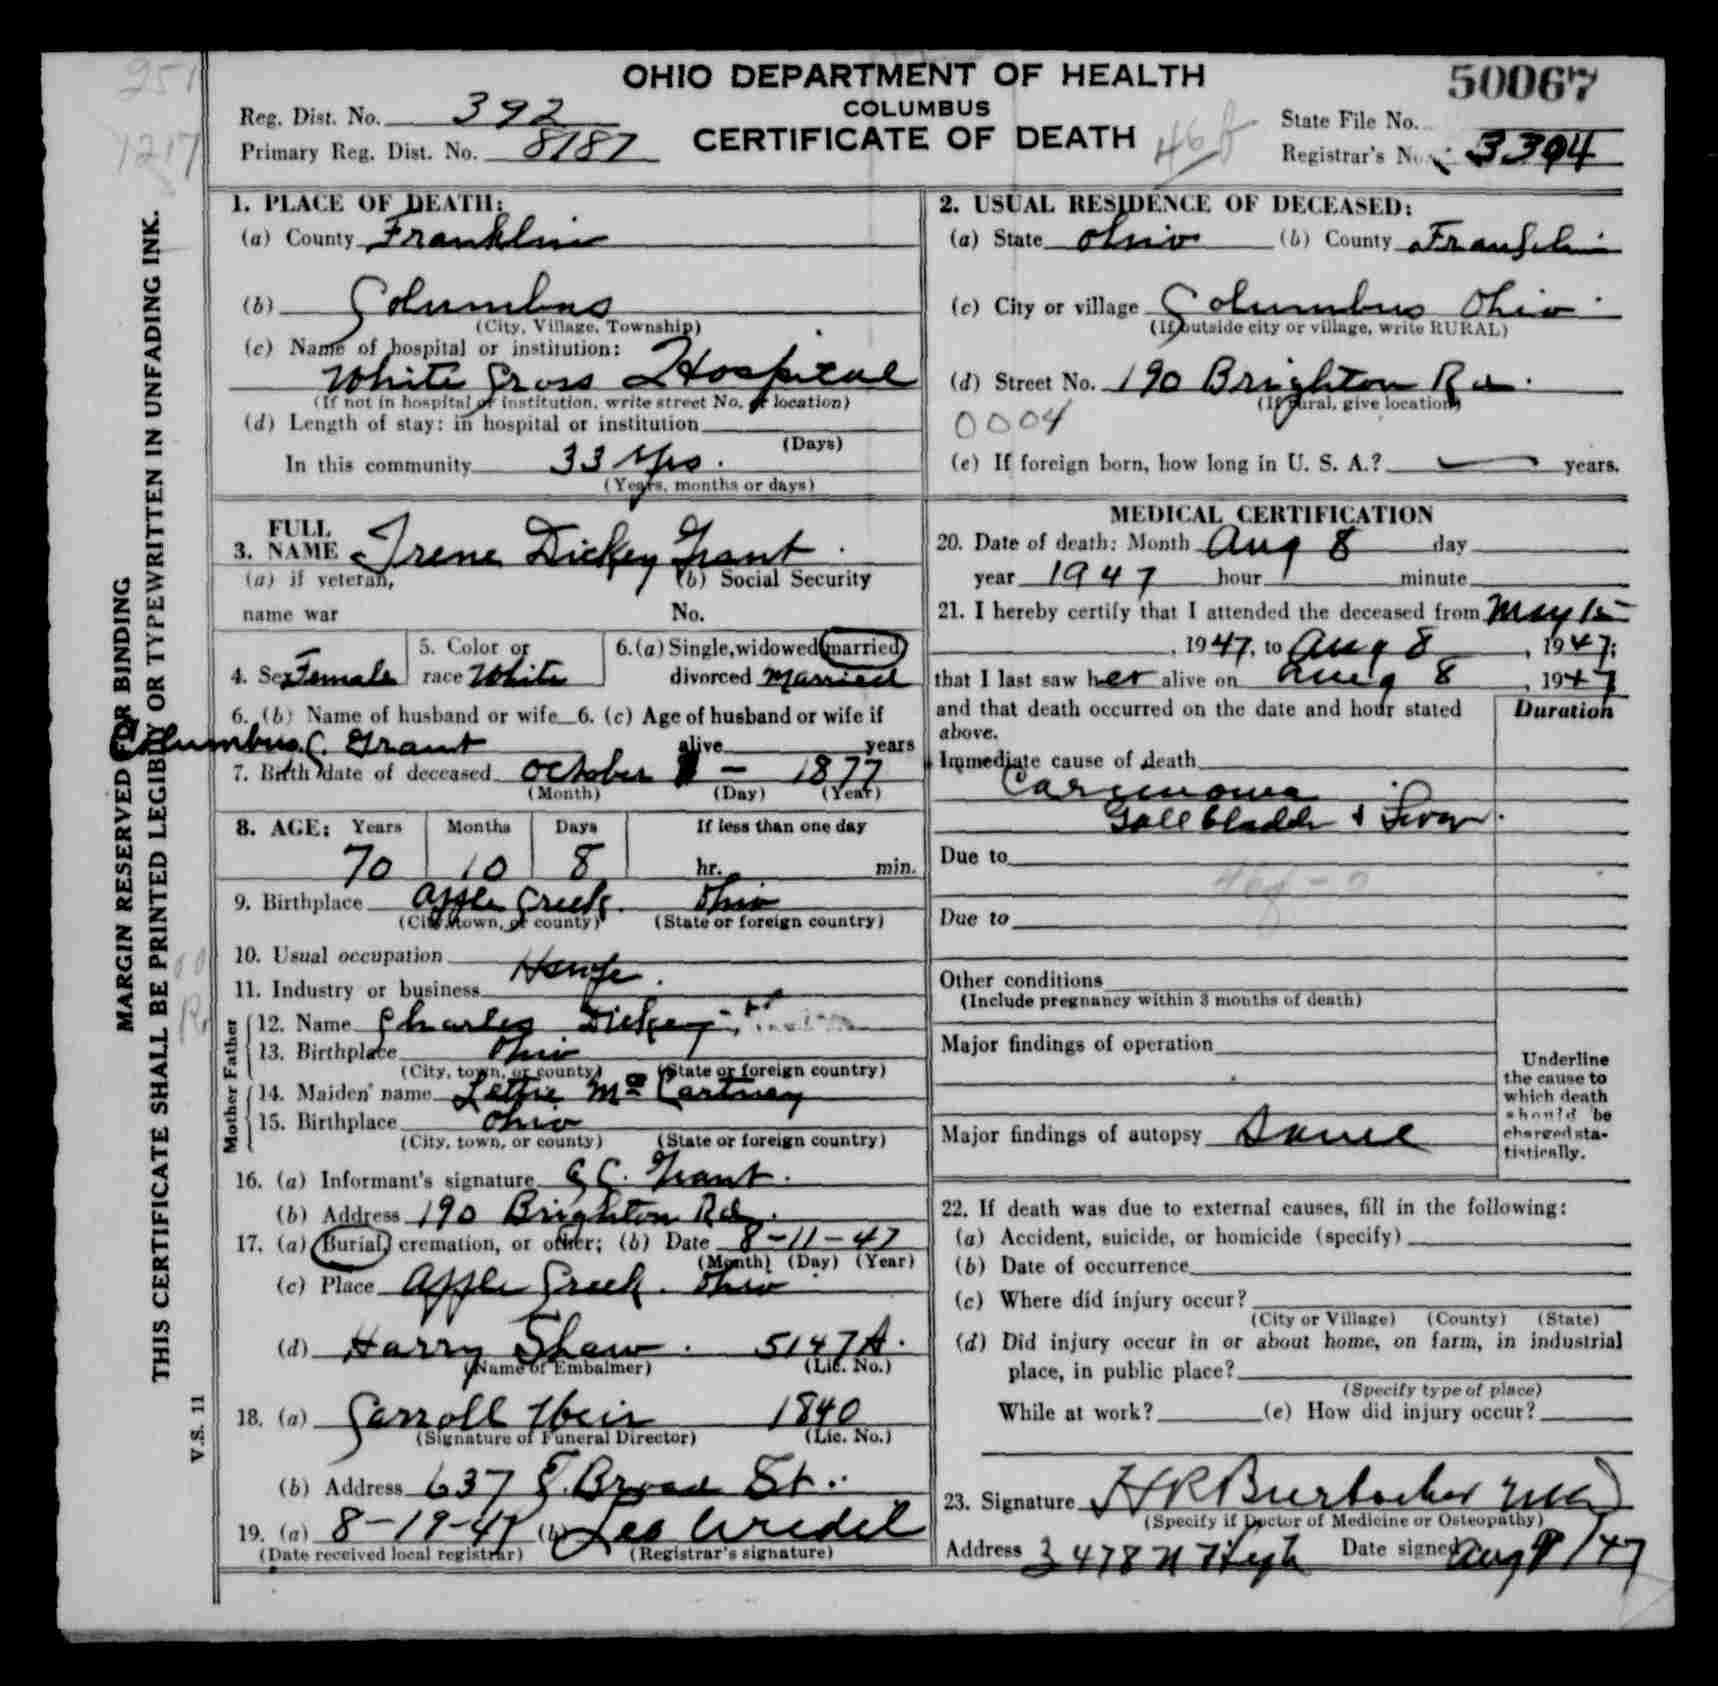 OHIO DEPARTMENT OF HEALTH
COLUMBUS
CERTIFICATE OF DEATH
50067
Reg. Dist. No. 392
Primary Reg. Dist. No. 8187
State File No.
Registrar's No. 3394
MARGIN RESERVED FOR BINDING
THIS CERTIFICATE SHALL BE PRINTED LEGIBLY OR TYPEWRITTEN IN UNFADING INK.
V.S. 11
1. PLACE OF DEATH:
(a) County Franklin
(b) Columbus
(City, Village, Township)
(c) Name of hospital or institution:
White Cross Hospital
(If not in hospital or institution, write street No. or location)
(d) Length of stay: in hospital or institution
(Days)
In this community 33 yrs.
(Years, months or days)
2. USUAL RESIDENCE OF DECEASED:
(a) State Ohio (b) County Franklin
(c) City or village Columbus Ohio
(If outside city or village, write RURAL)
(d) Street No. 190 Brighton Rd.
(If rural, give location)
0004
(e) If foreign born, how long in U. S. A.? years.
3. FULL NAME Irene Dickey Grant
(a) if veteran, (b) Social Security
name war No.
4. Sex Female 5. Color or race White 6.(a) Single, widowed married
divorced Married
6. (b) Name of husband or wife 6. (c) Age of husband or wife if
Columbus C. Grant alive years
7. Birth date of deceased October - 1877
(Month) (Day) (Year)
8. AGE: Years Months Days If less than one day
70 10 8 hr. min.
9. Birthplace Apple Creek. Ohio
(City, town, or county) (State or foreign country)
10. Usual occupation
11. Industry or business
Father
12. Name Charles Dickey
13. Birthplace Ohio
(City, town, or county) (State or foreign country)
Mother
14. Maiden name Lettie McCartney
15. Birthplace Ohio
(City, town, or county) (State or foreign country)
16. (a) Informant's signature C. Grant.
(b) Address 190 Brighton Rd.
17. (a) Burial, cremation, or other; (b) Date 8-11-47
(Month) (Day) (Year)
(c) Place Apple Creek. Ohio
(d) Harry Shaw. 5147A.
(Name of Embalmer) (Lic. No.)
18. (a) 1840
(Signature of Funeral Director) (Lic. No.)
(b) Address 637 E. Broad St.
19. (a) 8-19-47 (b)
(Date received local registrar) (Registrar's signature)
MEDICAL CERTIFICATION
20. Date of death: Month Aug 8 day
year 1947 hour minute
21. I hereby certify that I attended the deceased from May 15
, 1947, to Aug 8, 1947;
that I last saw her alive on Aug 8, 1947
and that death occurred on the date and hour stated
above.
Duration
Immediate cause of death
Carcinoma
Gall bladder & Liver.
Due to
Due to
Other conditions
(Include pregnancy within 3 months of death)
Major findings of operation
Major findings of autopsy Same
Underline
the cause to
which death
should be
charged sta-
tistically.
22. If death was due to external causes, fill in the following:
(a) Accident, suicide, or homicide (specify)
(b) Date of occurrence
(c) Where did injury occur?
(City or Village) (County) (State)
(d) Did injury occur in or about home, on farm, in industrial
place, in public place?
(Specify type of place)
While at work? (e) How did injury occur?
23. Signature H R Burbacher MD
(Specify if Doctor of Medicine or Osteopathy)
Address 3478 N High Date signed Aug 9/47